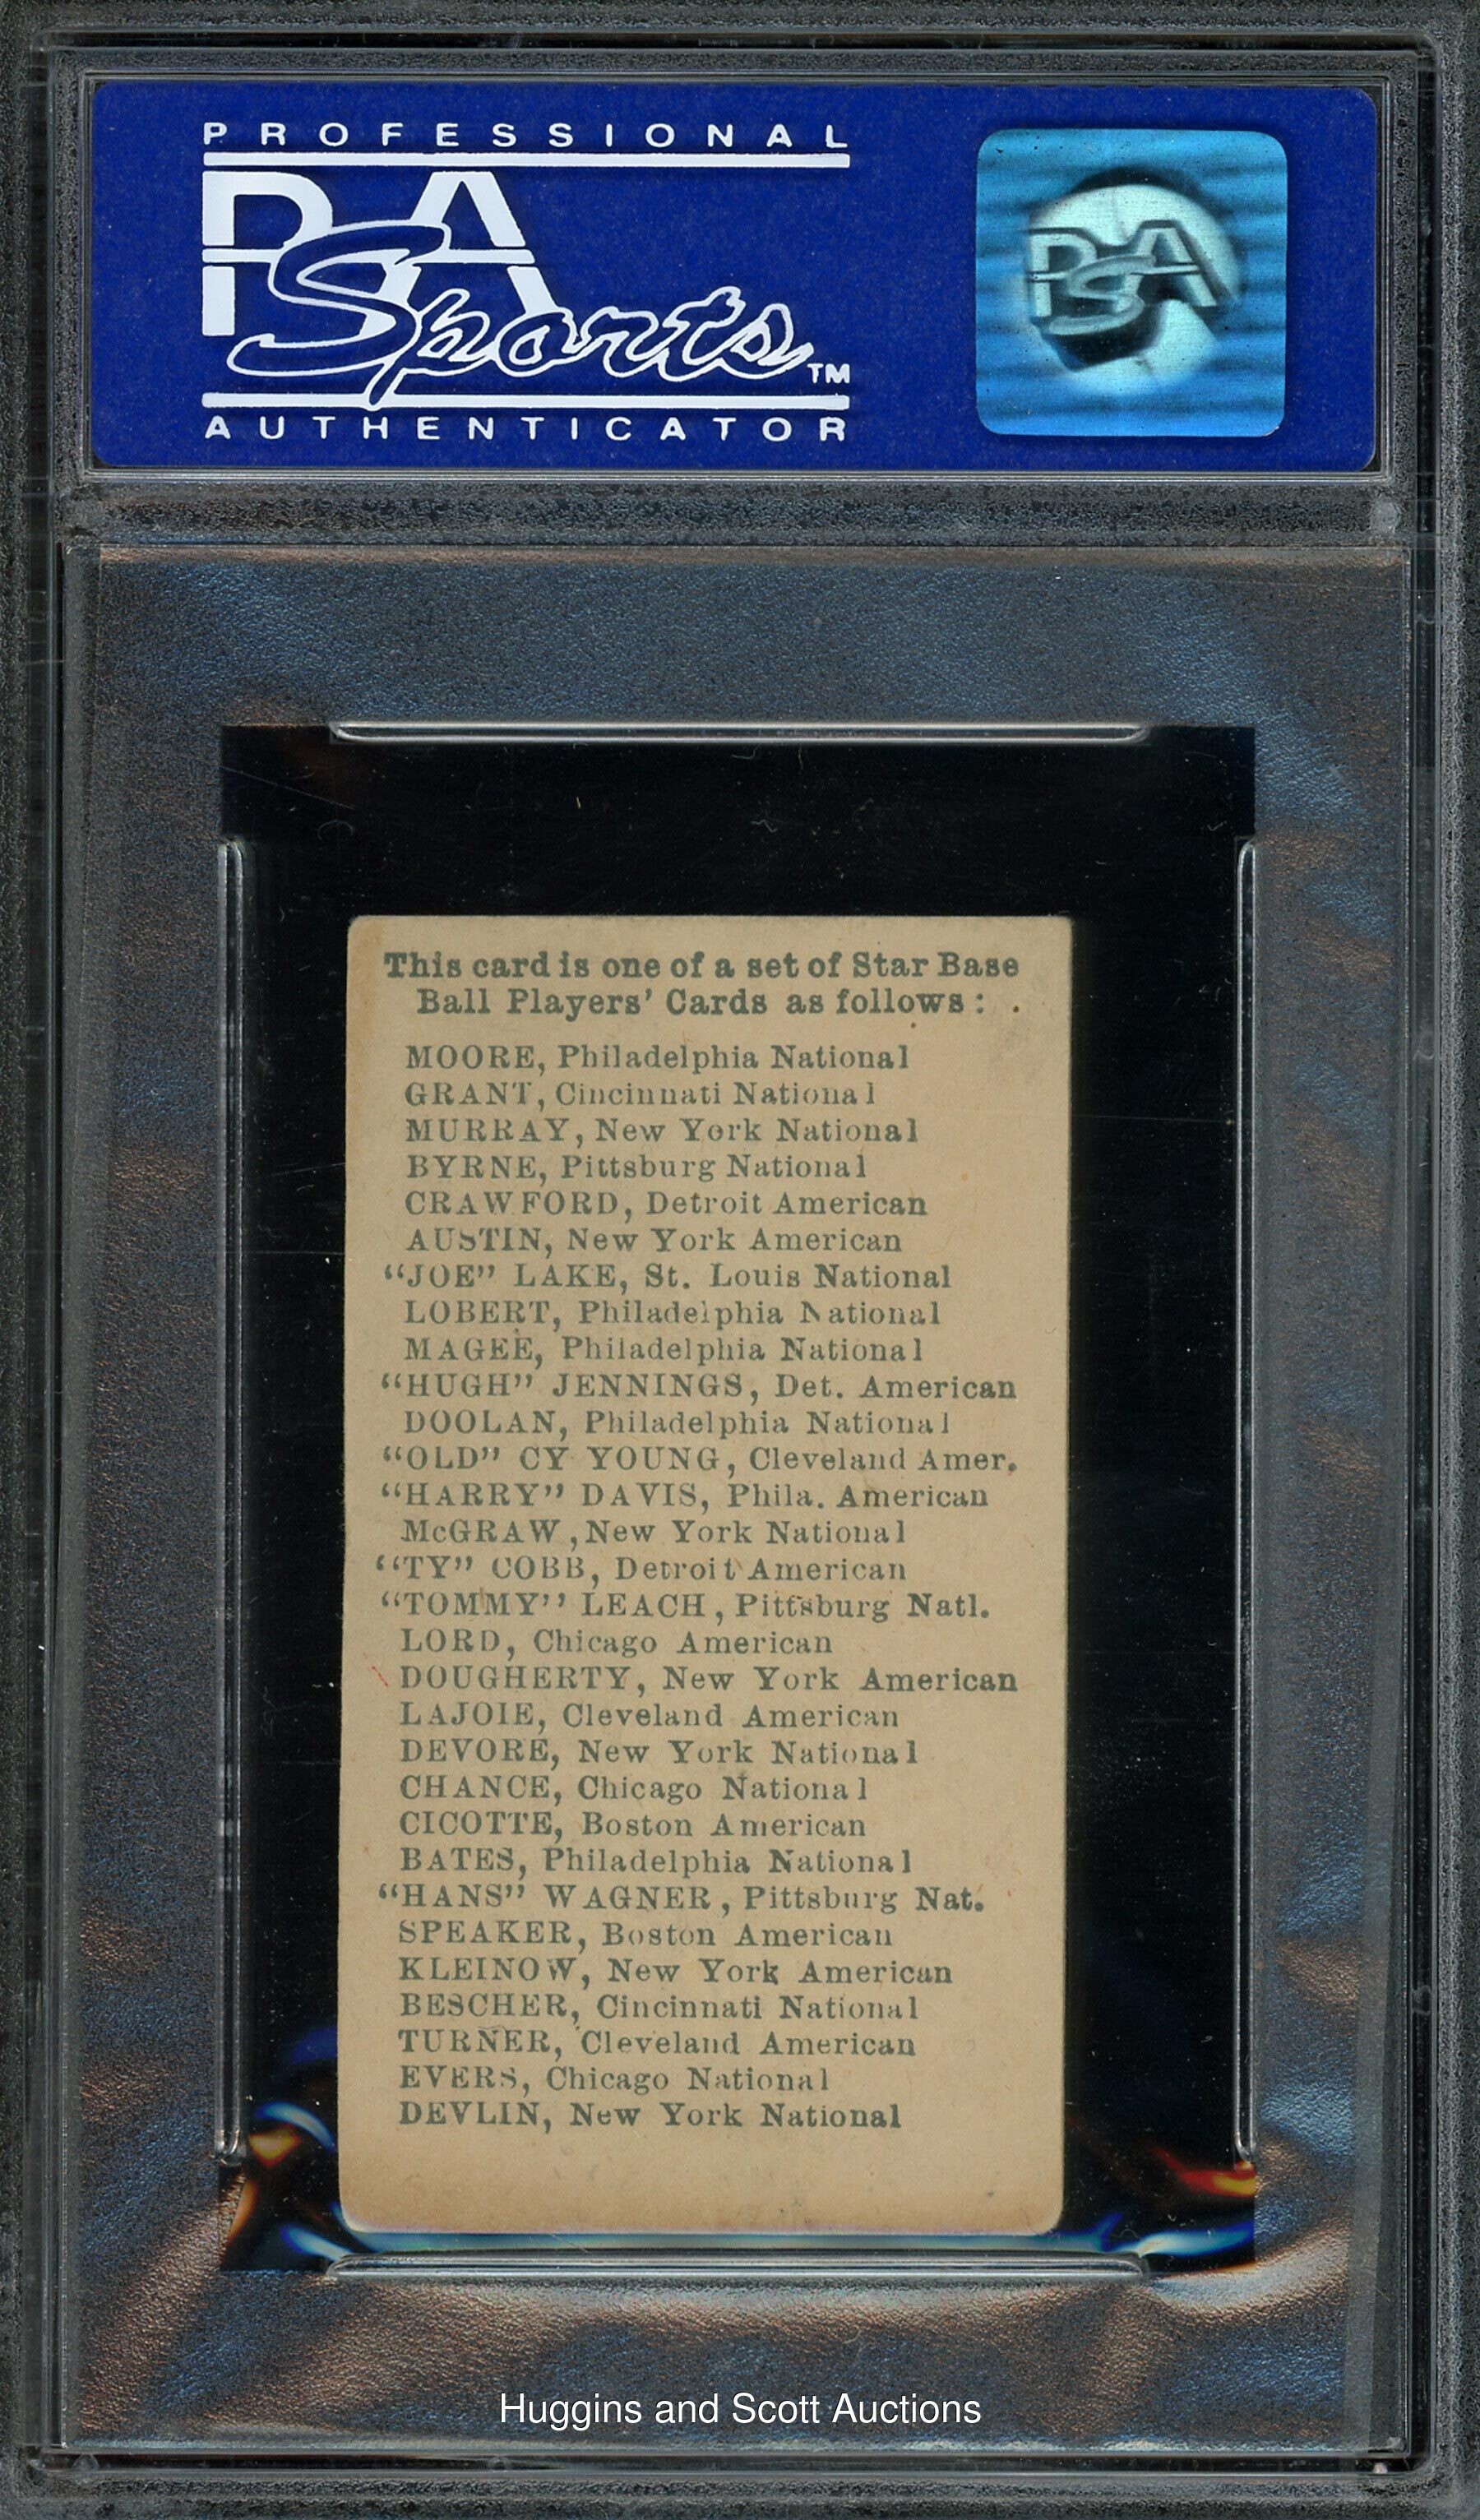 PROFESSIONAL
PSA
Sports TM
AUTHENTICATOR
PSA
This card is one of a set of Star Base
Ball Players' Cards as follows:
MOORE, Philadelphia National
GRANT, Cincinnati National
MURRAY, New York National
BYRNE, Pittsburg National
CRAWFORD, Detroit American
AUSTIN, New York American
"JOE" LAKE, St. Louis National
LOBERT, Philadelphia National
MAGEE, Philadelphia National
"HUGH" JENNINGS, Det. American
DOOLAN, Philadelphia National
"OLD" CY YOUNG, Cleveland Amer.
"HARRY" DAVIS, Phila. American
McGRAW, New York National
"TY" COBB, Detroit American
"TOMMY" LEACH, Pittsburg Natl.
LORD, Chicago American
DOUGHERTY, New York American
LAJOIE, Cleveland American
DEVORE, New York National
CHANCE, Chicago National
CICOTTE, Boston American
BATES, Philadelphia National
"HANS" WAGNER, Pittsburg Nat.
SPEAKER, Boston American
KLEINOW, New York American
BESCHER, Cincinnati National
TURNER, Cleveland American
EVERS, Chicago National
DEVLIN, New York National
Huggins and Scott Auctions